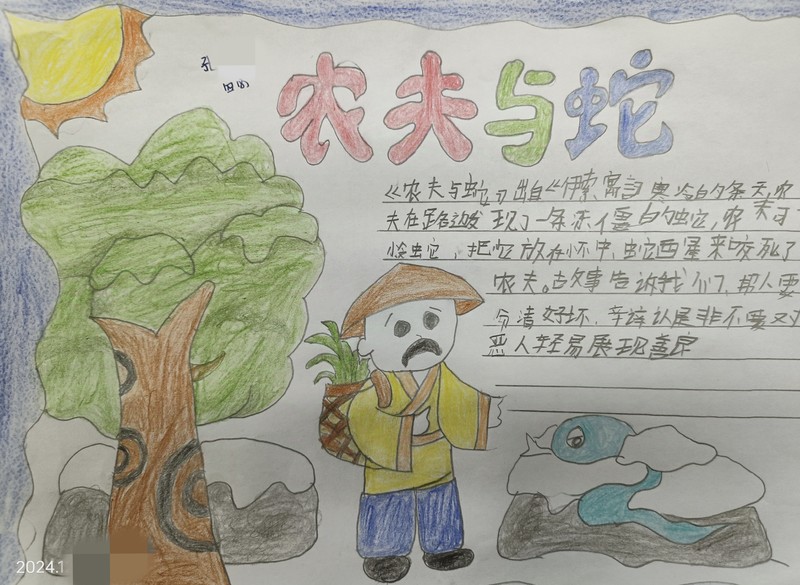 孔
四(8)
农夫与蛇
《农夫与蛇》出自《伊索寓言》寒冷的冬天,农
夫在路边发现了一条冻僵的蛇,农夫可
怜蛇,把它放在怀中,蛇醒来咬死了
农夫。故事告诉我们,帮人要
分清好坏,辛辨认是非不要对
恶人轻易展现善良
2024.1